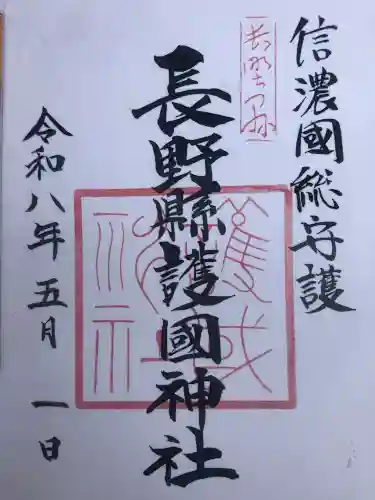 信濃國総守護
長野縣
長野縣護國神社
令和八年五月一日